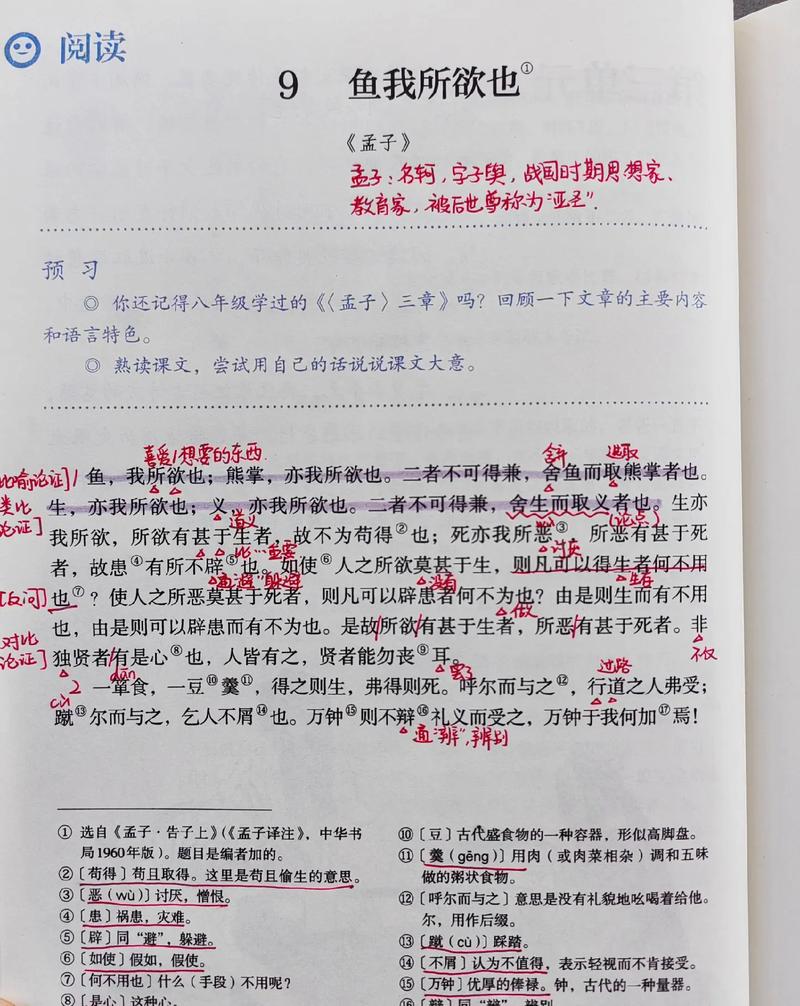 阅读
9 鱼我所欲也①
《孟子》
孟子：名轲，字子舆，战国时期思想家、
教育家，被后世尊称为“亚圣”.
预习
◎ 你还记得八年级学过的《〈孟子〉三章》吗？回顾一下文章的主要内容
和语言特色。
◎ 熟读课文，尝试用自己的话说说课文大意。
喜爱/想要的东西
舍弃 选取
比喻论证]
鱼，我所欲也；熊掌，亦我所欲也。二者不可得兼，舍鱼而取熊掌者也。
类比
论证]
生，亦我所欲也；义，亦我所欲也。二者不可得兼，舍生而取义者也。生亦
道义
(论点)
我所欲，所欲有甚于生者，故不为苟得②也；死亦我所恶③，所恶有甚于死
比…重要
讨厌
者，故患④有所不辟⑤也。如使⑥人之所欲莫甚于生，则凡可以得生者何不用
通“避”躲避
没有
生存
[反问]
也⑦？使人之所恶莫甚于死者，则凡可以辟患者何不为也？由是则生而有不用
做
也，由是则可以辟患而有不为也。是故所欲有甚于生者，所恶有甚于死者。非
对比
论证]
不仅
独贤者有是心⑧也，人皆有之，贤者能勿丧⑨耳。
dān
过路
2
一箪食，一豆⑩羹⑪，得之则生，弗得则死。呼尔而与之⑫，行道之人弗受；
cù
蹴⑬尔而与之，乞人不屑⑭也。万钟⑮则不辩⑯礼义而受之，万钟于我何加⑰焉！
通“辨”，辨别
① 选自《孟子·告子上》（《孟子译注》，中华书
局1960年版）。题目是编者加的。
②〔苟得〕苟且取得。这里是苟且偷生的意思。
③〔恶（wù）〕讨厌，憎恨。
④〔患〕祸患，灾难。
⑤〔辟〕同“避”，躲避。
⑥〔如使〕假如，假使。
⑦〔何不用也〕什么（手段）不用呢？
⑧〔是心〕这种心。
⑩〔豆〕古代盛食物的一种容器，形似高脚盘。
⑪〔羹（gēng）〕用肉（或肉菜相杂）调和五味
做的粥状食物。
⑫〔呼尔而与之〕意思是没有礼貌地吆喝着给他。
尔，用作后缀。
⑬〔蹴（cù）〕踩踏。
⑭〔不屑〕认为不值得，表示轻视而不肯接受。
⑮〔万钟〕优厚的俸禄。钟，古代的一种量器。
⑯〔辩〕同“辨”，辨别。